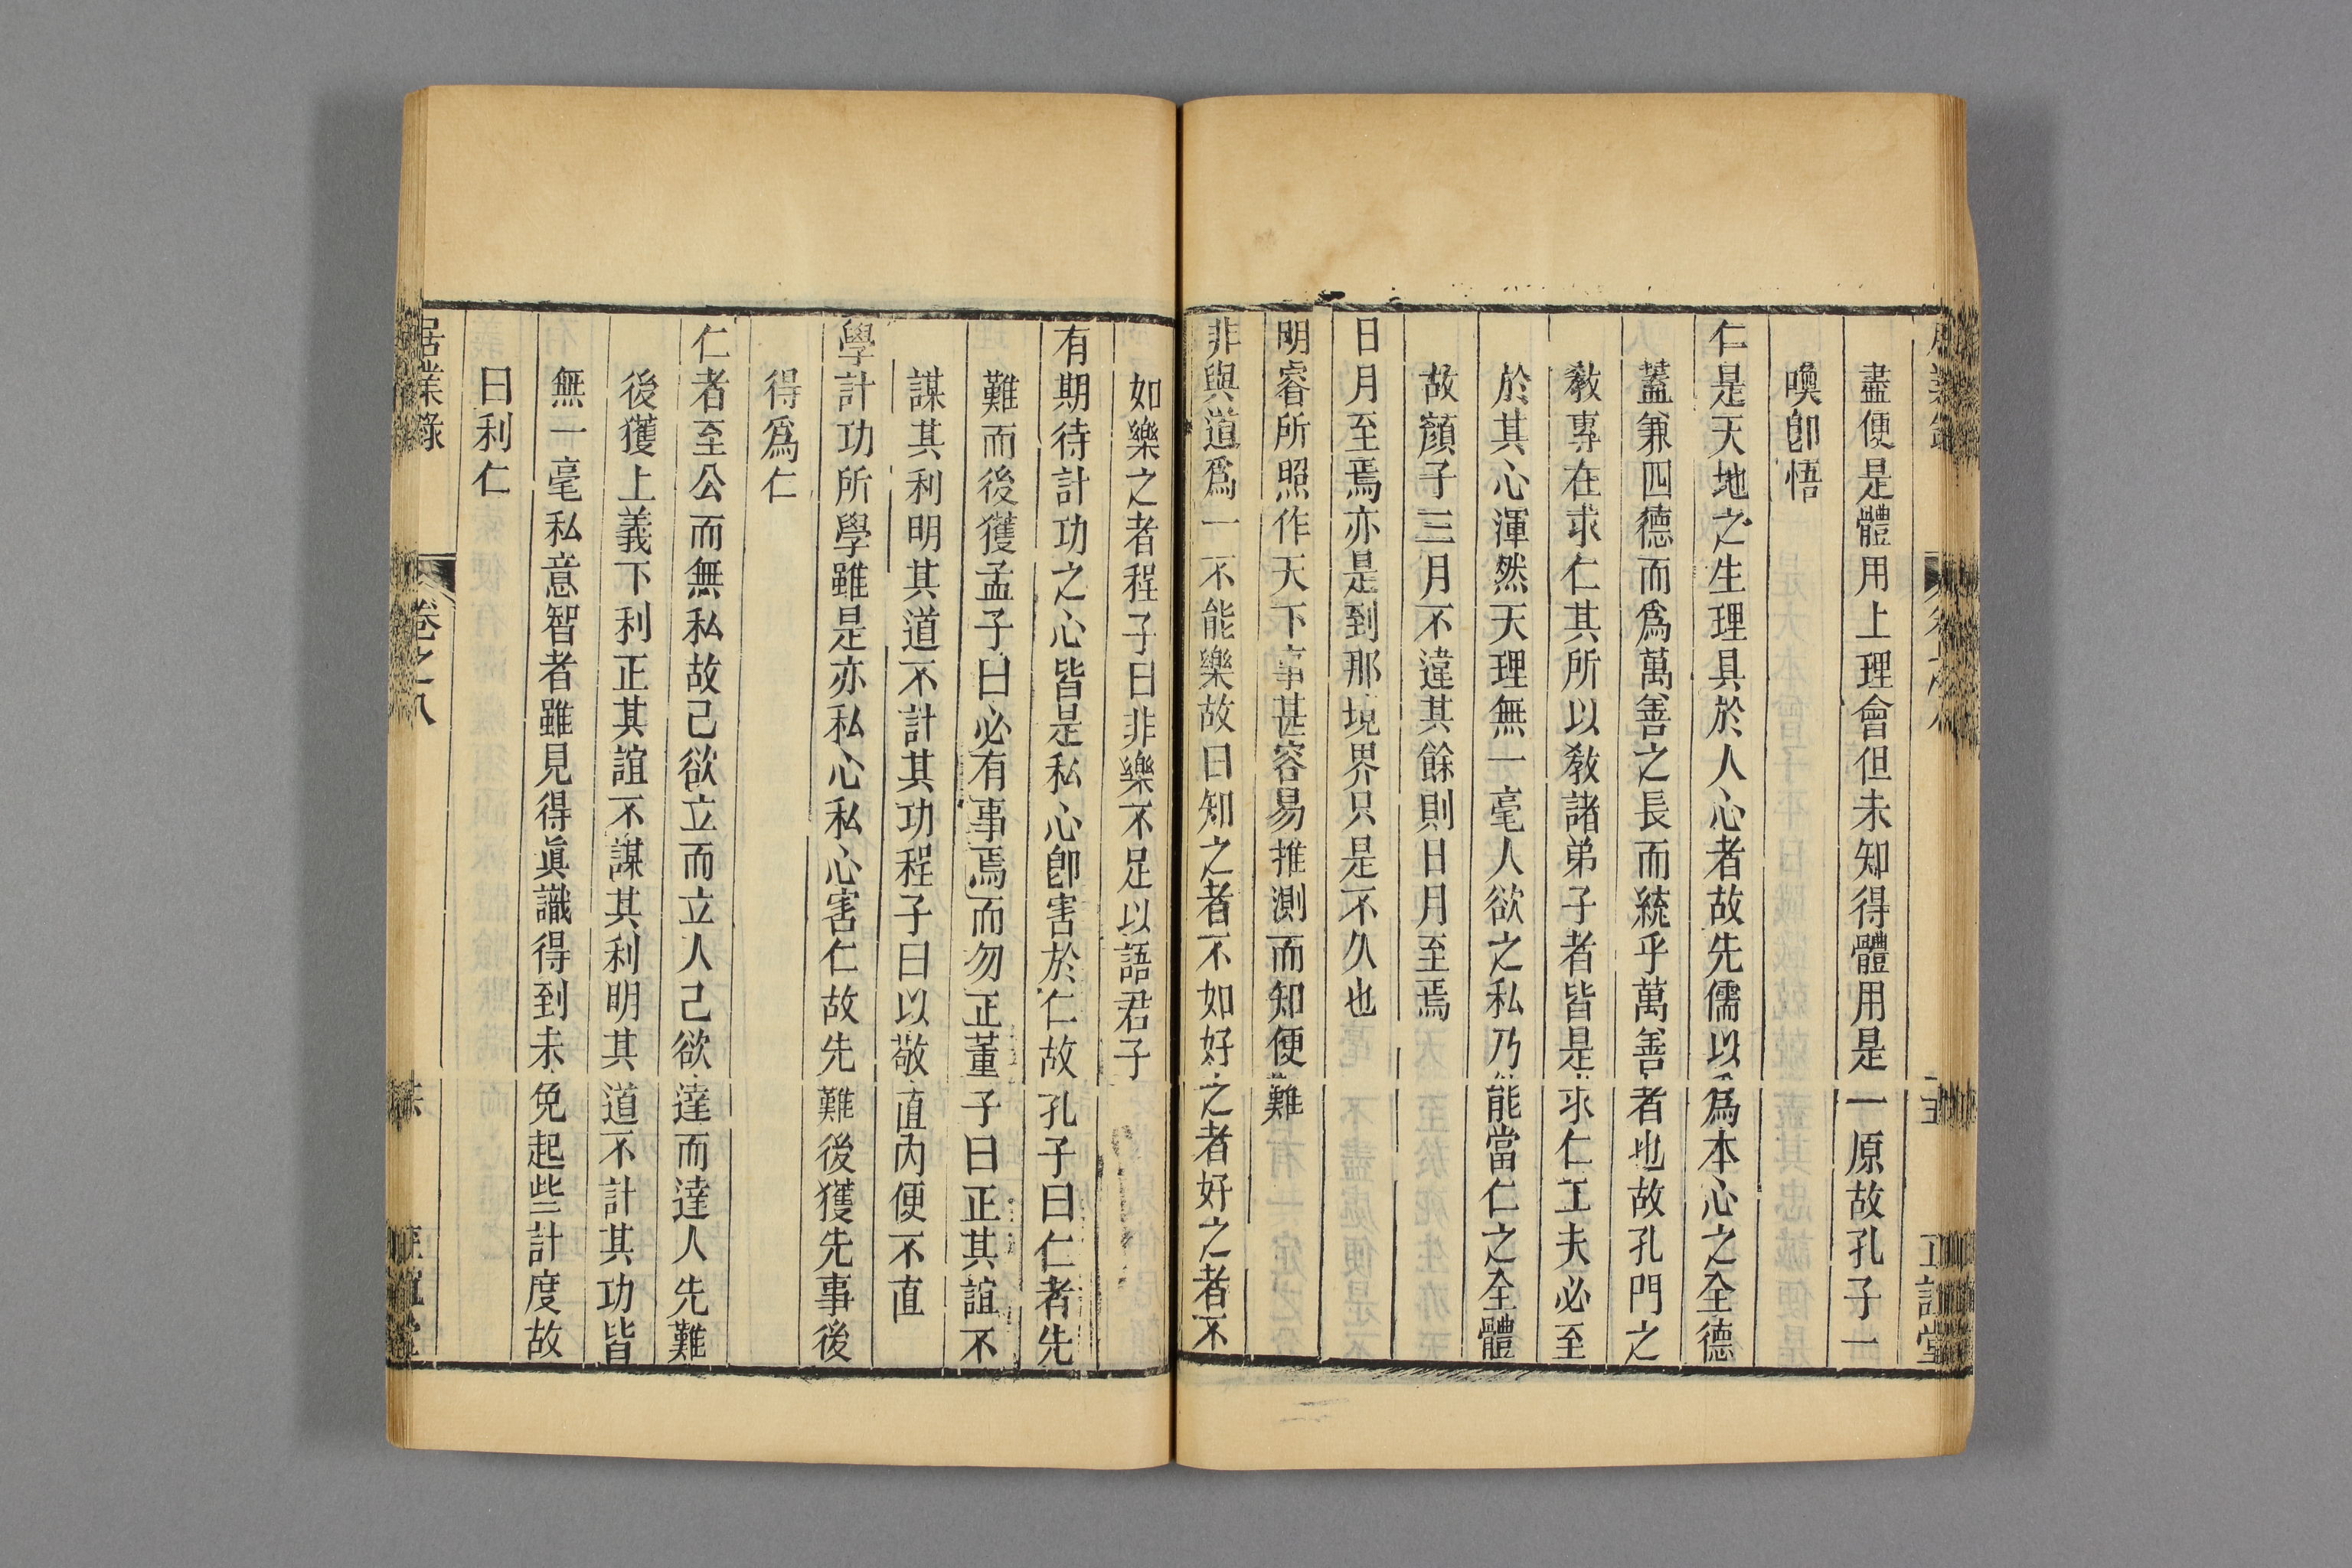 盡便是體用上理會但未知得體用是一原故孔子一
喚卽悟
仁是天地之生理具於人心者故先儒以爲本心之全德
蓋兼四德而爲萬善之長而統乎萬善者也故孔門之
敎專在求仁其所以敎諸弟子者皆是求仁工夫必至
於其心渾然天理無一毫人欲之私乃能當仁之全體
故顏子三月不違其餘則日月至焉
日月至焉亦是到那境界只是不久也
明睿所照作天下事甚容易推測而知便難
非與道爲一不能樂故曰知之者不如好之者好之者不
如樂之者程子曰非樂不足以語君子
有期待計功之心皆是私心卽害於仁故孔子曰仁者先
難而後獲孟子曰必有事焉而勿正董子曰正其誼不
謀其利明其道不計其功程子曰以敬直內便不直
學計功所學雖是亦私心私心害仁故先難後獲先事後
得爲仁
仁者至公而無私故己欲立而立人己欲達而達人先難
後獲上義下利正其誼不謀其利明其道不計其功皆
無一毫私意智者雖見得眞識得到未免起些計度故
曰利仁
居業錄 卷之八